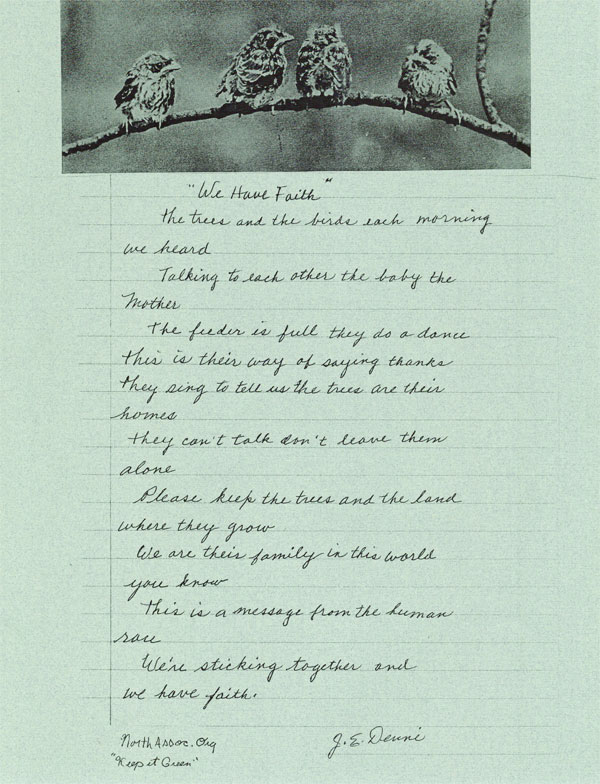 "We Have Faith"
the trees and the birds each morning
we heard
Talking to each other the baby the
Mother
The feeder is full they do a dance
this is their way of saying thanks
they sing to tell us the trees are their
homes
they can't talk don't leave them
alone
Please keep the trees and the land
where they grow
We are their family in this world
you know
this is a message from the human
race
We're sticking together and
we have faith.
North Assoc. Org
"Keep it Green"
J. E. Denni